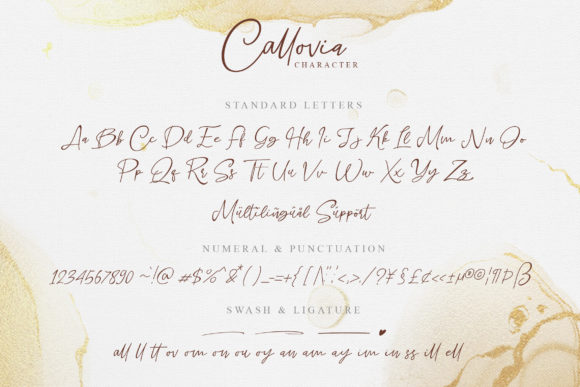 Callovia
CHARACTER
STANDARD LETTERS
Aa Bb Cc Dd Ee Ff Gg Hh Ii Jj Kk Ll Mm Nn Oo
Pp Qq Rr Ss Tt Uu Vv Ww Xx Yy Zz
Mültilingüàl Süpport
NUMERAL & PUNCTUATION
1234567890 ~`!@ #$%^&*( )_-=+{ [ |\":;'<,>./?¥§£¢«±µ®©¦¶Þß
SWASH & LIGATURE
all ll tt ov om on ou oy an am ay im in ss ill ell